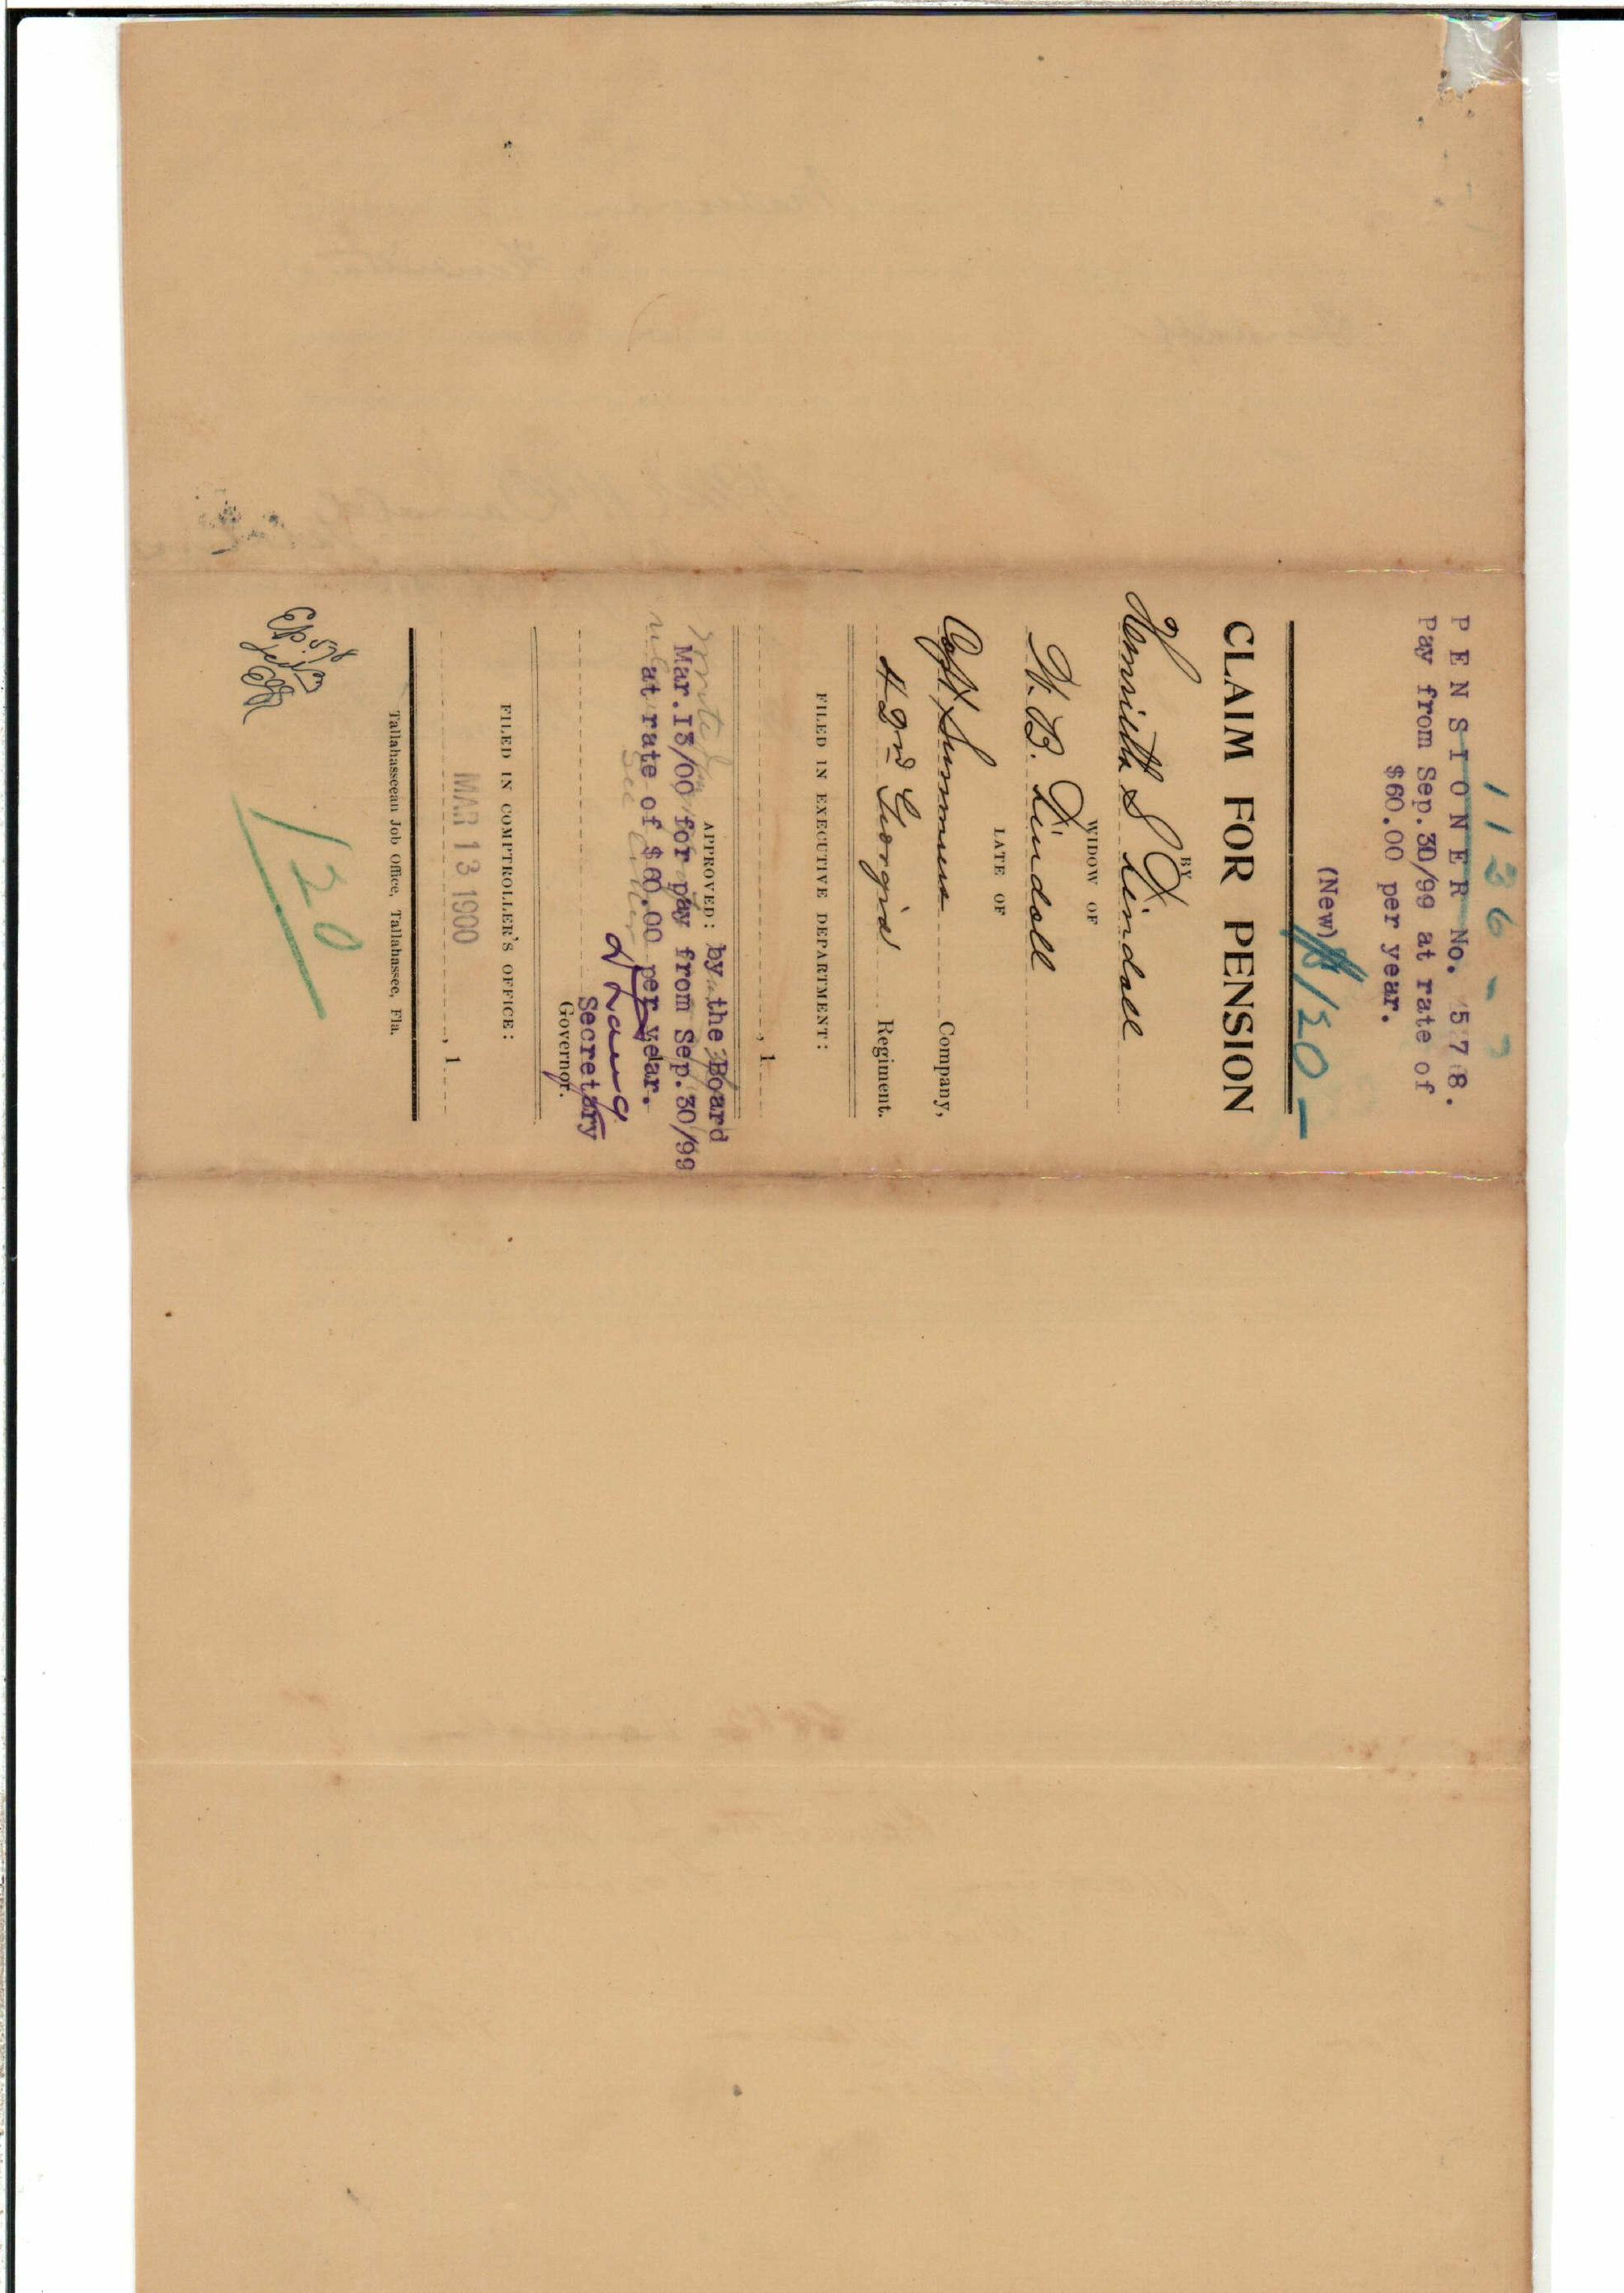 1136-
PENSIONER No. 578.
Pay from Sep.30/99 at rate of
$60.00 per year.
(New)
$120-
CLAIM FOR PENSION
BY
Henrietta S Dindall
WIDOW OF
W. B. Dindall
LATE OF
Capt Summers Company,
42nd Georgia Regiment.
FILED IN EXECUTIVE DEPARTMENT:
, 1
APPROVED: by the Board
Mar.13/00 for pay from Sep.30/99
at rate of $60.00 per year.
D Lang
Secretary
Governor.
FILED IN COMPTROLLER'S OFFICE:
MAR 13 1900
, 1
Tallahasseean Job Office, Tallahassee, Fla.
120